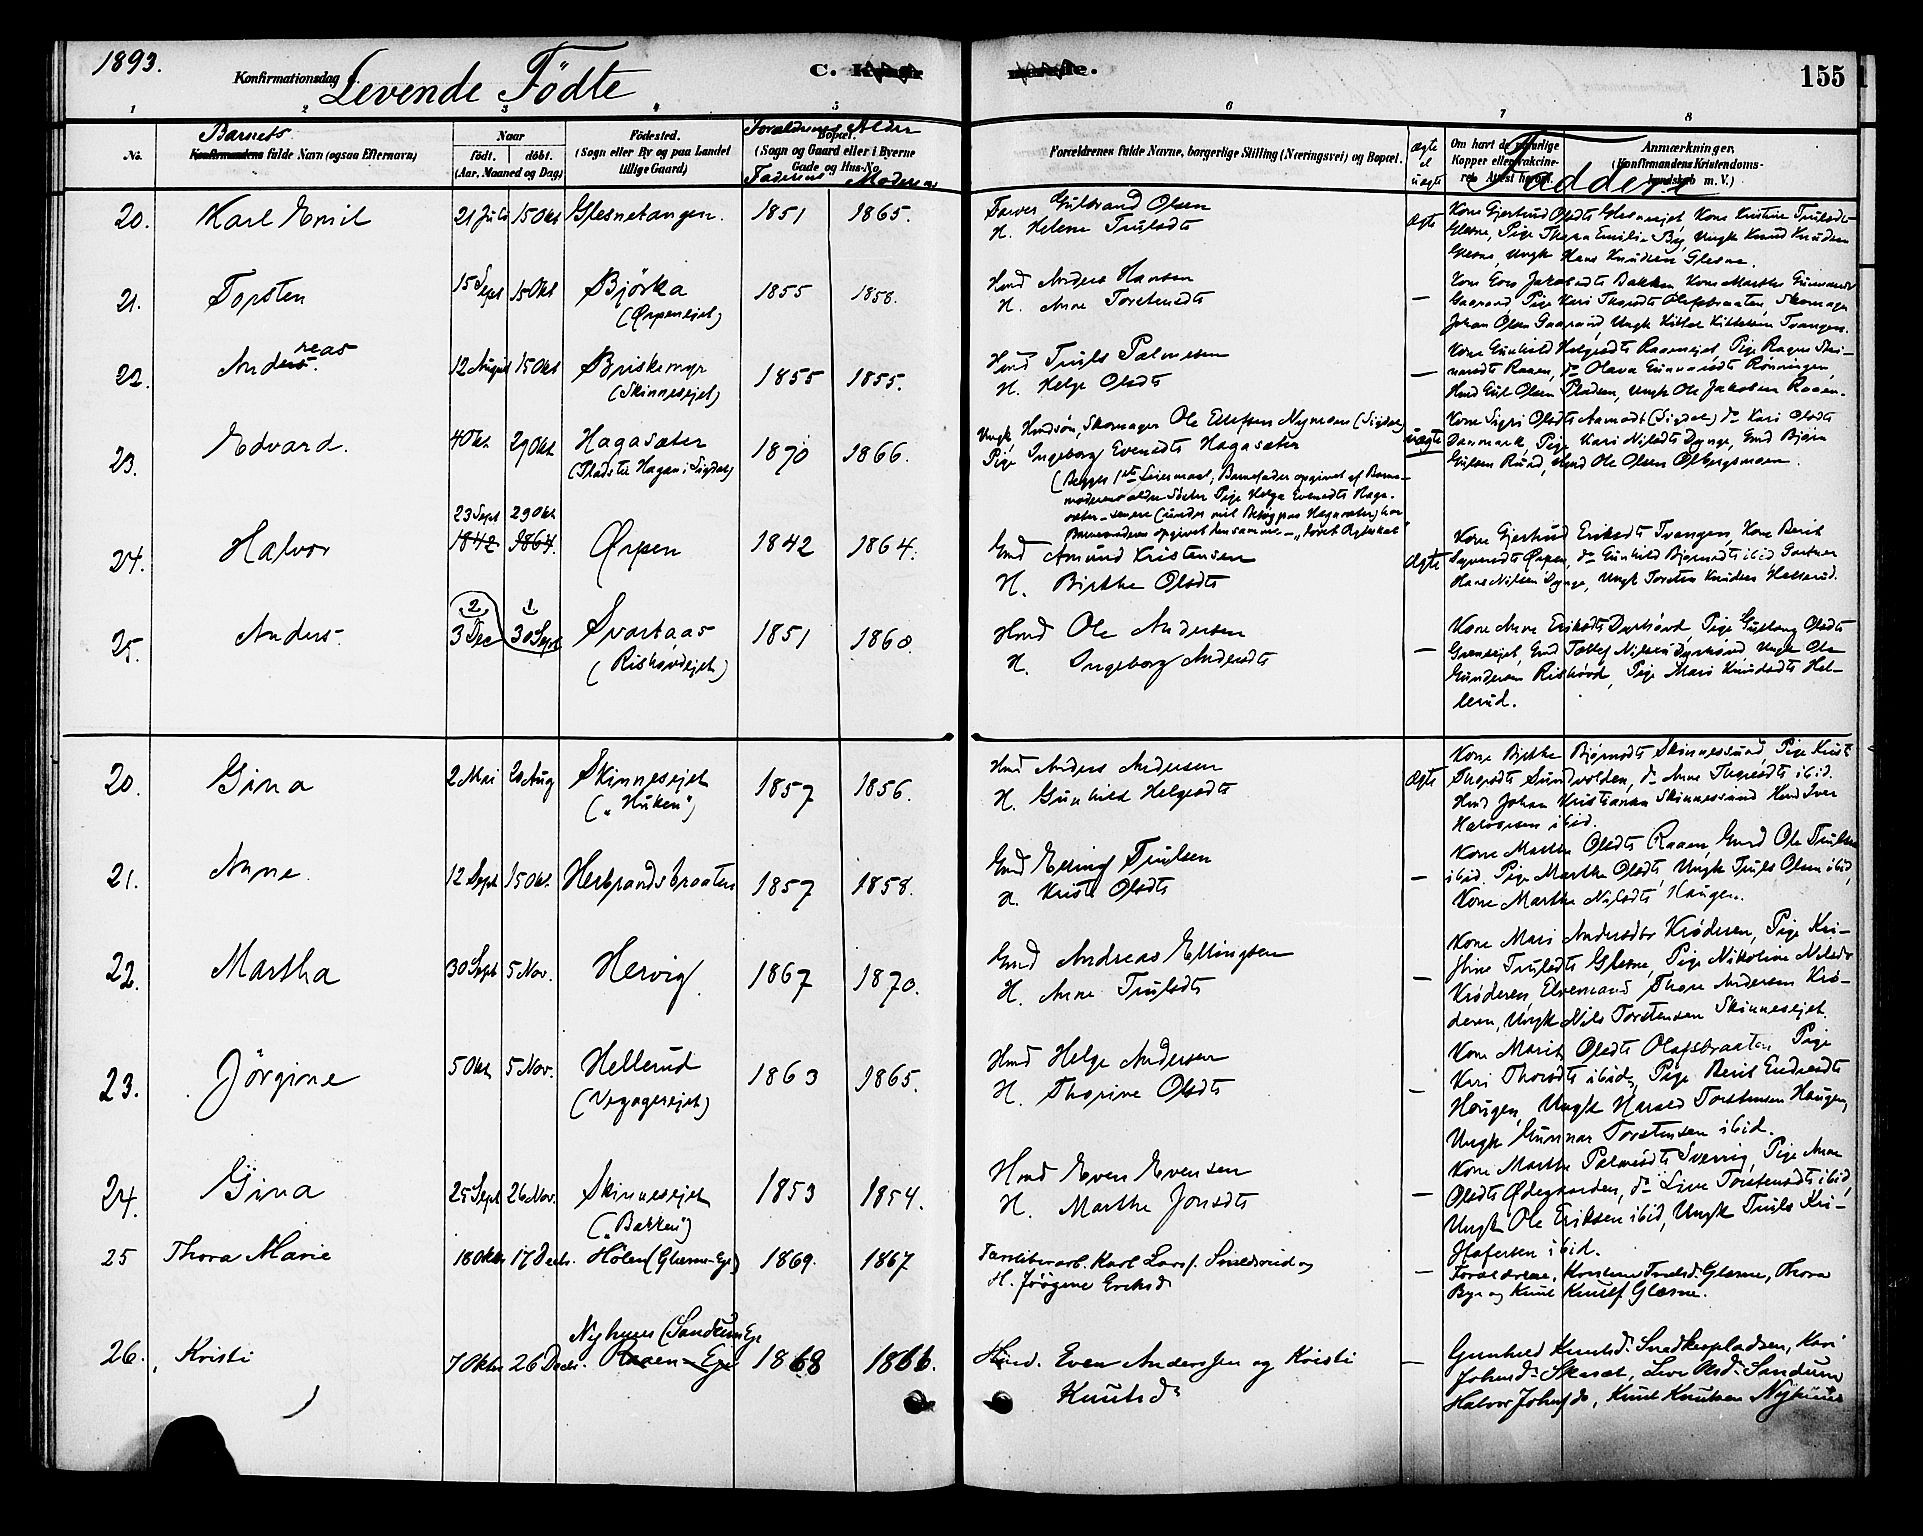 1893.
Konfirmationsdag
Levende Födte
C.
155
1 2 3 4 5 6 7 8
No.
Barnets
Konfirmandens fulde Navn (ogsaa Efternavn)
Naar
födt. döbt.
(Aar, Maaned og Dag)
Födested.
(Sogn eller By og paa Landet
tillige Gaard)
Forældrenes Alder
Bopæl.
(Sogn og Gaard eller i Byerne
Gade og Hus-No.
Faderens Moderens
Forældrenes fulde Navne, borgerlige Stilling (Næringsvei) og Bopæl.
Ægte
el
uægte
Om havt de naturlige
Kopper eller vakcine-
ret. Attest herom.
Faddere
Anmærkninger,
(Konfirmandens Kristendoms-
kundskab m. V.)
20. Karl Emil 21 Juli 15 Okt Glesnetangen. 1851 1865.
Farver Gulbrand Olsen
H. Helene Trulsdt
Ægte
Kone Gjertrud Olsdt Glesneejet, Kone Kristine Trulsdt
Glesne, Pige Thora Emilie By, Ungk Knud Knudsen
Glesne, Ungk Hans Knudsen Glesne.
21. Torsten 15 Sept 15 Okt Bjørka (Ørpenejet) 1855 1858.
Hmd Anders Hansen
H. Anne Torstensdt
—
Kone Eva Jakobsdt Bakken, Kone Marthe Gunnarsdt
Gaarand, Pige Kari Thorsdt Olafsbraaten, Skomager
Johan Olsen Gaarand, Ungk Kittel Kittelsen Tvangen.
22. Andreas. 12 August 15 Okt Briskemyr (Skinnesejet) 1855 1855.
Hmd Truls Palmesen
H. Helge Olsdt
—
Kone Gunhild Helgesdt Raaenejet, Pige Ragne
Raaen, do Olava Gunnarsdt Rönningen,
Hmd Gul Olsen Pladsen, Ungk Ole Jakobsen Raaen.
23. Edvard. 4 Okt. 29 Okt Hagasæter (Tilsted Hagan i Sigdal) 1870 1866.
Ungk, Hmdsön, Skomager Ole Ellefsen Nymoen (Sigdal)
Pige Ingeborg Evensdt Hagasæter
(Begges 1ste Leiermaal; Barnefader opgivet af Barne-
moderens ældre Söster Pige Helga Evensdt Haga-
sæter – senere (under mit Besög paa Hagasæter) har
Barnemoderen opgivet den samme –
uægte
Kone Sigri Olsdt Aamodt (Sigdal) do Kari Olsdt
Danmark, Pige Kari Nilsdt Dynge, Gmd Björn
Gulsen Rud, Hmd Ole Olsen Olbergsmoen.
24. Halvor 23 Sept 29 Okt 1842 1864. Ørpen 1842 1864.
Gmd Amund Kristensen
H. Birthe Olsdt
Ægte
Kone Gjertrud Eriksdt Tvangen, Kone Berit
Ørpen, do Gunhild Bjørnsdt ibid, Gartner
Hans Nilsen Dynge, Ungk Torsten Knudsen Hellerud.
25. Anders. 2 1 3 Dec 30 Sept Svartaas (Rishovdejet) 1851 1860.
Hmd Ole Andersen
H. Ingeborg Andersdt
—
Kone Anne Eriksdt Dyrhovd, Pige Gulbang Olsdt
Grønsejet, Gmd Tollef Nilsen Dyrhovd, Ungk Ole
Gundersen Rishovd, Pige Mari Knudsdt Hel-
lerud.
20. Gina 2 Mai 20 Aug Skinnesejet („Huken") 1857 1856.
Hmd Anders Andersen
H. Gunhild Helgesdt
Ægte
Kone Birthe Bjørnsdt Skinnessund, Pige Krist
Thorsdt Sundvolden, do Anne Thorsdt ibid.
Hmd Johan Kristiansen Skinnessund Hmd Iver
Halvorsen ibid.
21. Anne. 12 Sept 15 Okt. Herbrandsbraaten 1857 1858.
Gmd Elling Trulsen
H. Kristi Olsdt
—
Kone Martha Olsdt Raaen, Gmd Ole Trulsen
ibid. Pige Marthe Olsdt, Ungk Truls Olsen ibid,
Kone Marthe Nilsdt Haugen.
22. Martha 30 Sept 5 Nov. Hervig. 1867 1870.
Gmd Andreas Ellingsen
H. Anne Trulsdt
—
Kone Mari Andersdtr Krøderen, Pige Kri-
stine Trulsdt Glesne, Pige Nikoline Nilsdtr
Krøderen, Elvemand Thore Andersen Krø-
deren, Ungk Nils Torstensen Skinnesejet.
23. Jörgine 5 Okt 5 Nov. Hellerud 1863 1865.
Hmd Helge Andersen
H. Thorine Olsdt
—
Kone Marit Olsdt Olafsbraaten, Pige
Kari Thorsdt ibid, Pige Berit Endresdt
Haugen, Ungk Harald Torstensen Haugen,
Ungk Gunnar Torstensen ibid.
24. Gina 25 Sept 26 Nov. Skinnesejet („Bakken") 1853 1854.
Hmd Even Evensen
H. Marthe Jonsdt
—
Kone Marthe Palmesdt Sverrig, Pige Anne
Olsdt Ødegaarden, do Live Torstensdt ibid,
Ungk Ole Eriksen ibid, Ungk Truls Kri-
stofersen ibid.
25 Thora Marie 18 Oktr 17 Decbr. Hölen (Glæsne-Eje) 1869. 1867
Karl Larsf. og
H. Jörgine Eriksd
—
Forældrene, Kristine Trulsd. Glæsne, Thora
Bye og Knut Knutsf Glæsne.
26. Kristi 7 Oktr 26 Decbr. Nyhuus (Sandum Eje 1868 1866.
Hmd. Even Anderssen og Kristi
Knutsdr
—
Gunhild Knutsd. Snedkerpladsen, Kari
Johnsdr Skaret, Live Olsdr Sandum
Halvor Johns, Knut Knutsen Nyhuus